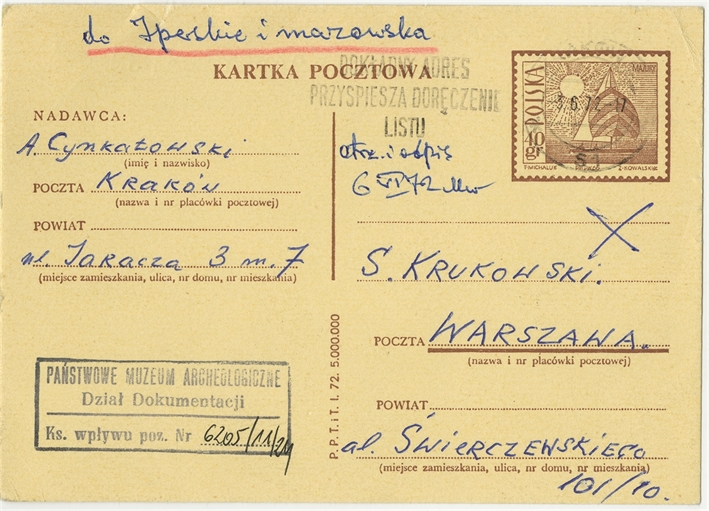 do Iperskie i mazowska
KARTKA POCZTOWA
DOKŁADNY ADRES
PRZYSPIESZA DORĘCZENIE
LISTU
POLSKA
MAZURY
40
gr
T-MICHALUK
Z-KOWALSKI
3.6.72-17
S1
NADAWCA:
A. Cynkałowski
(imię i nazwisko)
POCZTA Kraków
(nazwa i nr placówki pocztowej)
POWIAT
ul. Jaracza 3 m. 7
(miejsce zamieszkania, ulica, nr domu, nr mieszkania)
otrz. i odpis
6 VI 72
S. KRUKOWSKI.
POCZTA WARSZAWA.
(nazwa i nr placówki pocztowej)
POWIAT
al. ŚWIERCZEWSKIEGO
(miejsce zamieszkania, ulica, nr domu, nr mieszkania)
101/10.
P. P. T. i T. I. 72. 5.000.000
PAŃSTWOWE MUZEUM ARCHEOLOGICZNE
Dział Dokumentacji
Ks. wpływu poz. Nr 6205/11/24